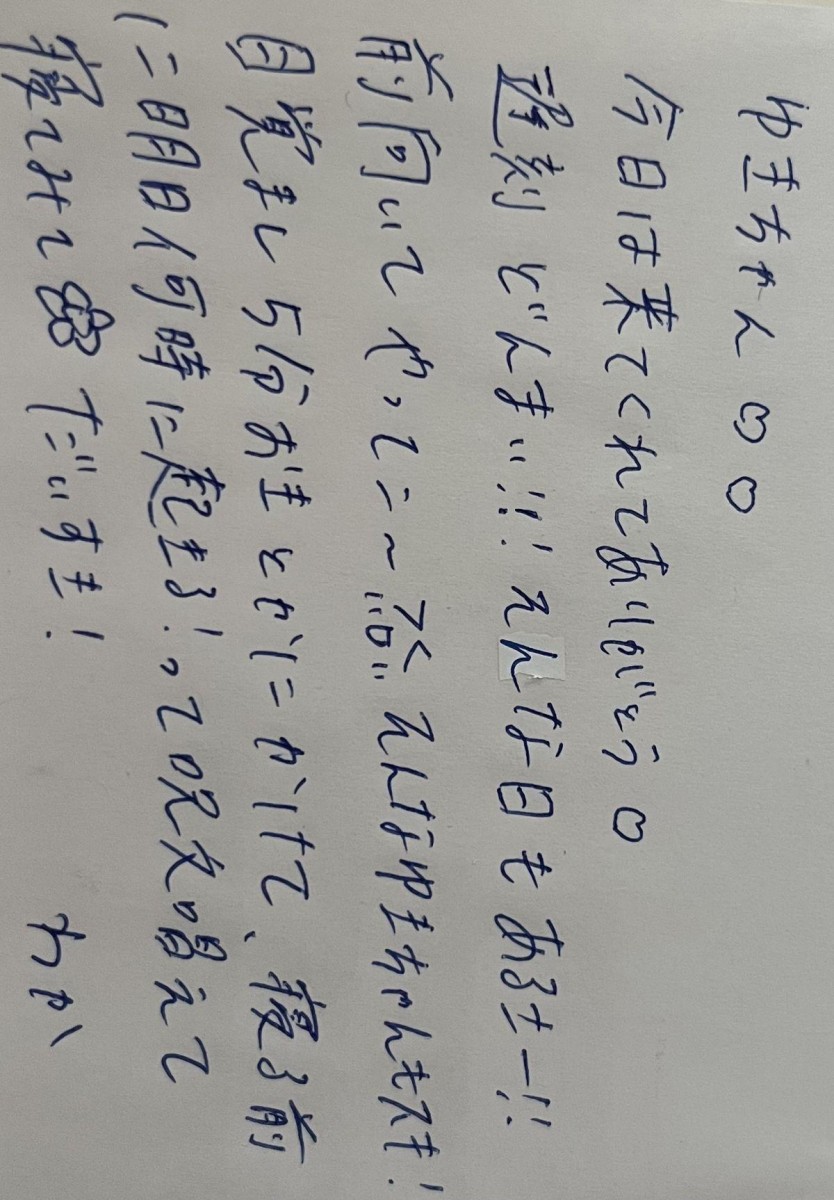 ゆきちゃん♡♡
今日は来てくれてありがとう♡
遅刻どんまい!!! そんな日もあるさー!!
前向いてやってこ〜 そんなゆきちゃんもスキ!
目覚まし5分おきとかにかけて、寝る前
に明日何時に起きる!って呪文唱えて
寝てみて だいすき!
わか